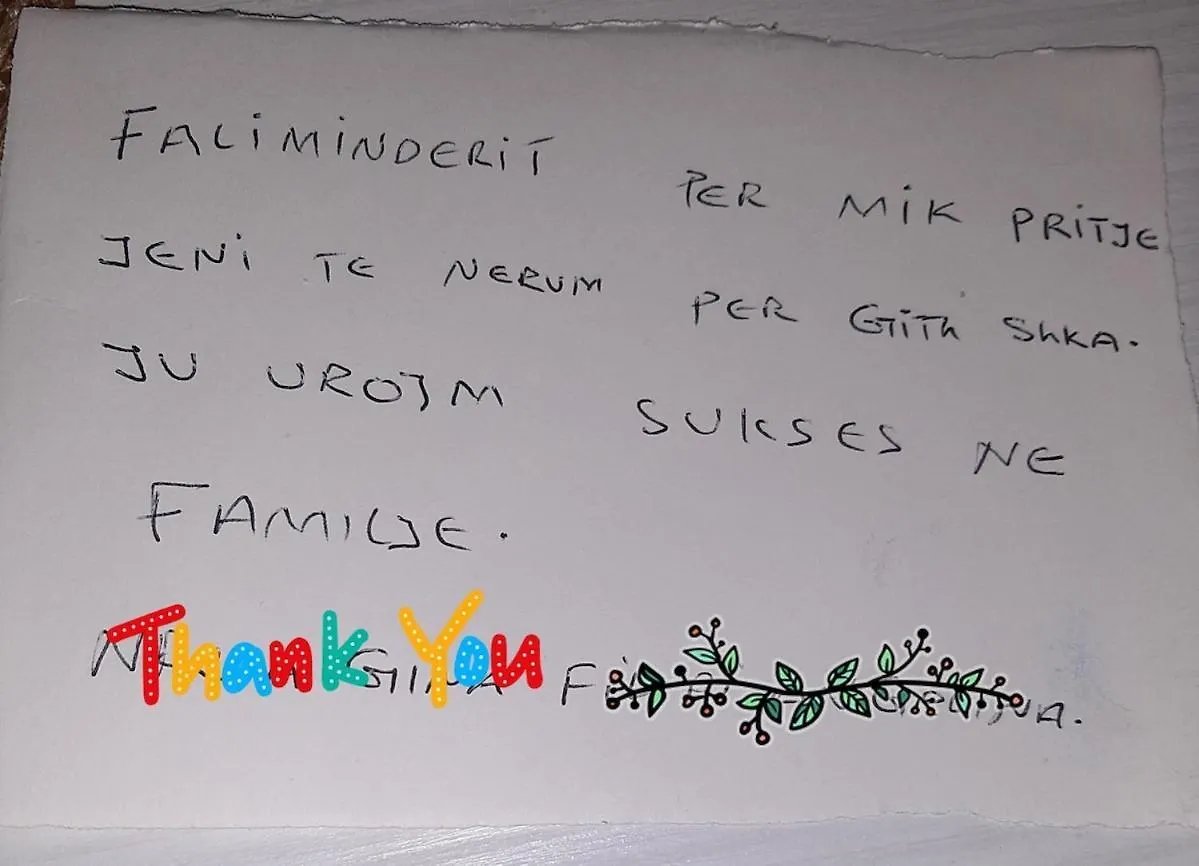 FALIMINDERIT PER MIK PRITJE
JENI TE NERUM PER GITH SHKA.
JU UROJM SUKSES NE
FAMILJE.
Thank You